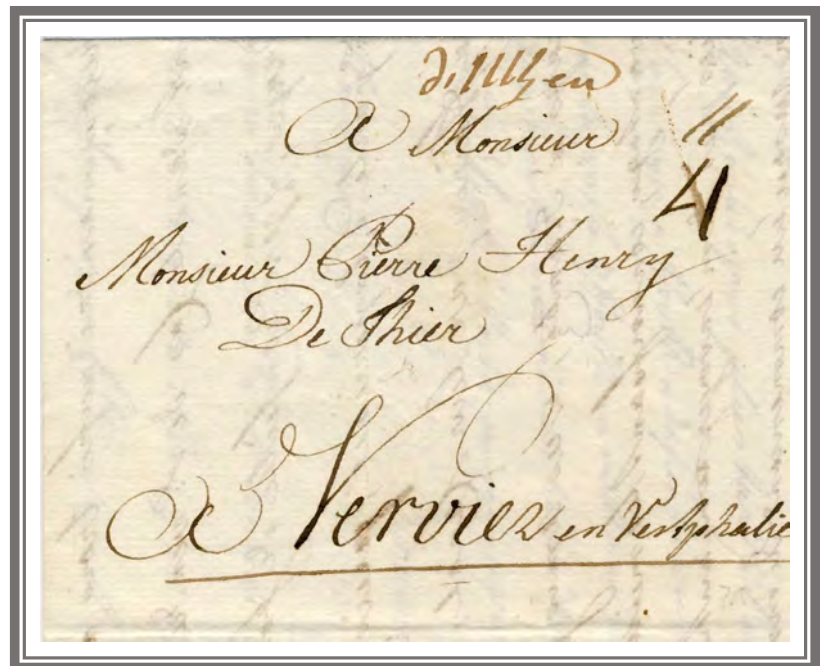 A Monsieur
Monsieur Pierre Henry
De Thier
A Vervier en Vestphalie